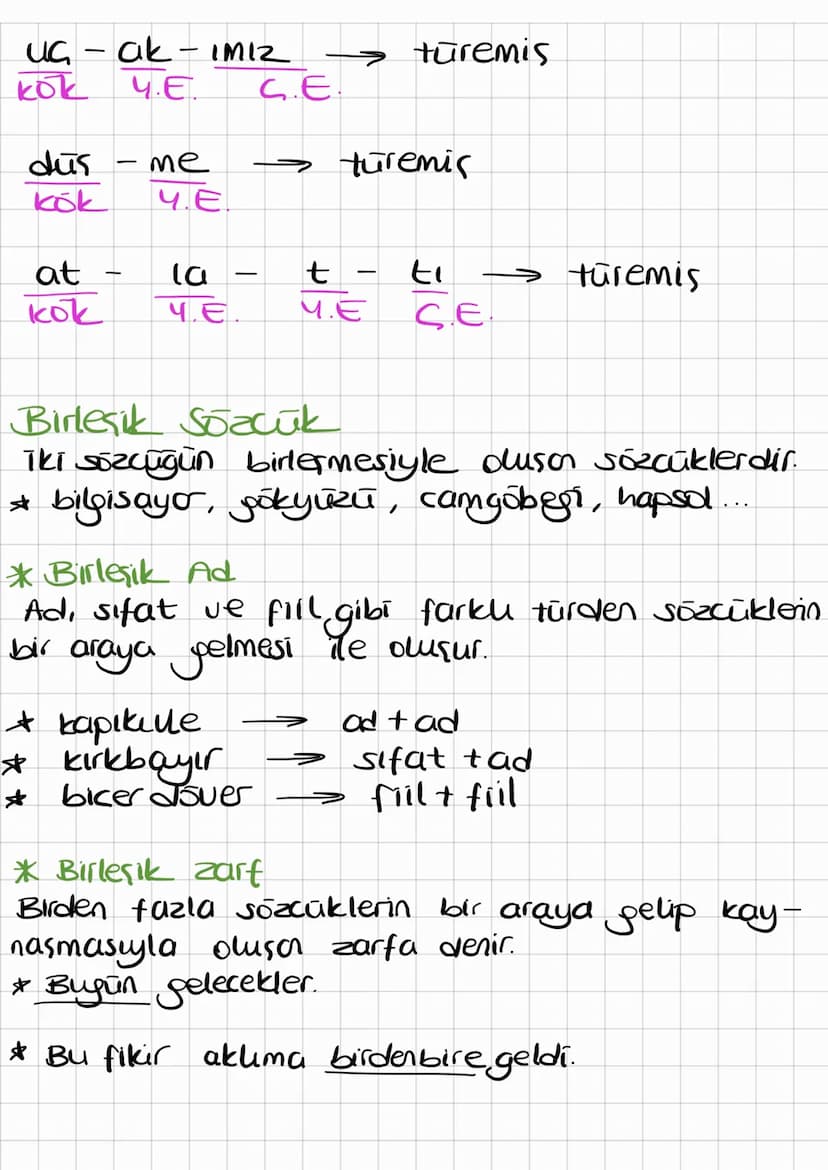 uç - ak - ımız → türemiş
kök Y.E. Ç.E.
düş - me → türemiş
kök Y.E.
at - la - t - tı → türemiş
kök Y.E. Y.E Ç.E.
Birleşik Sözcük
İki sözcüğün birleşmesiyle oluşan sözcüklerdir.
* bilgisayar, gökyüzü, camgöbeği, hapsol...
* Birleşik Ad
Ad, sıfat ve fiil gibi farklı türden sözcüklerin
bir araya gelmesi ile oluşur.
* kapıkule → ad + ad
* kırkbayır → sıfat + ad
* biçerdöver → fiil + fiil
* Birleşik zarf
Birden fazla sözcüklerin bir araya gelip kay-
naşmasıyla oluşan zarfa denir.
* Bugün gelecekler.
* Bu fikir aklıma birdenbire geldi.